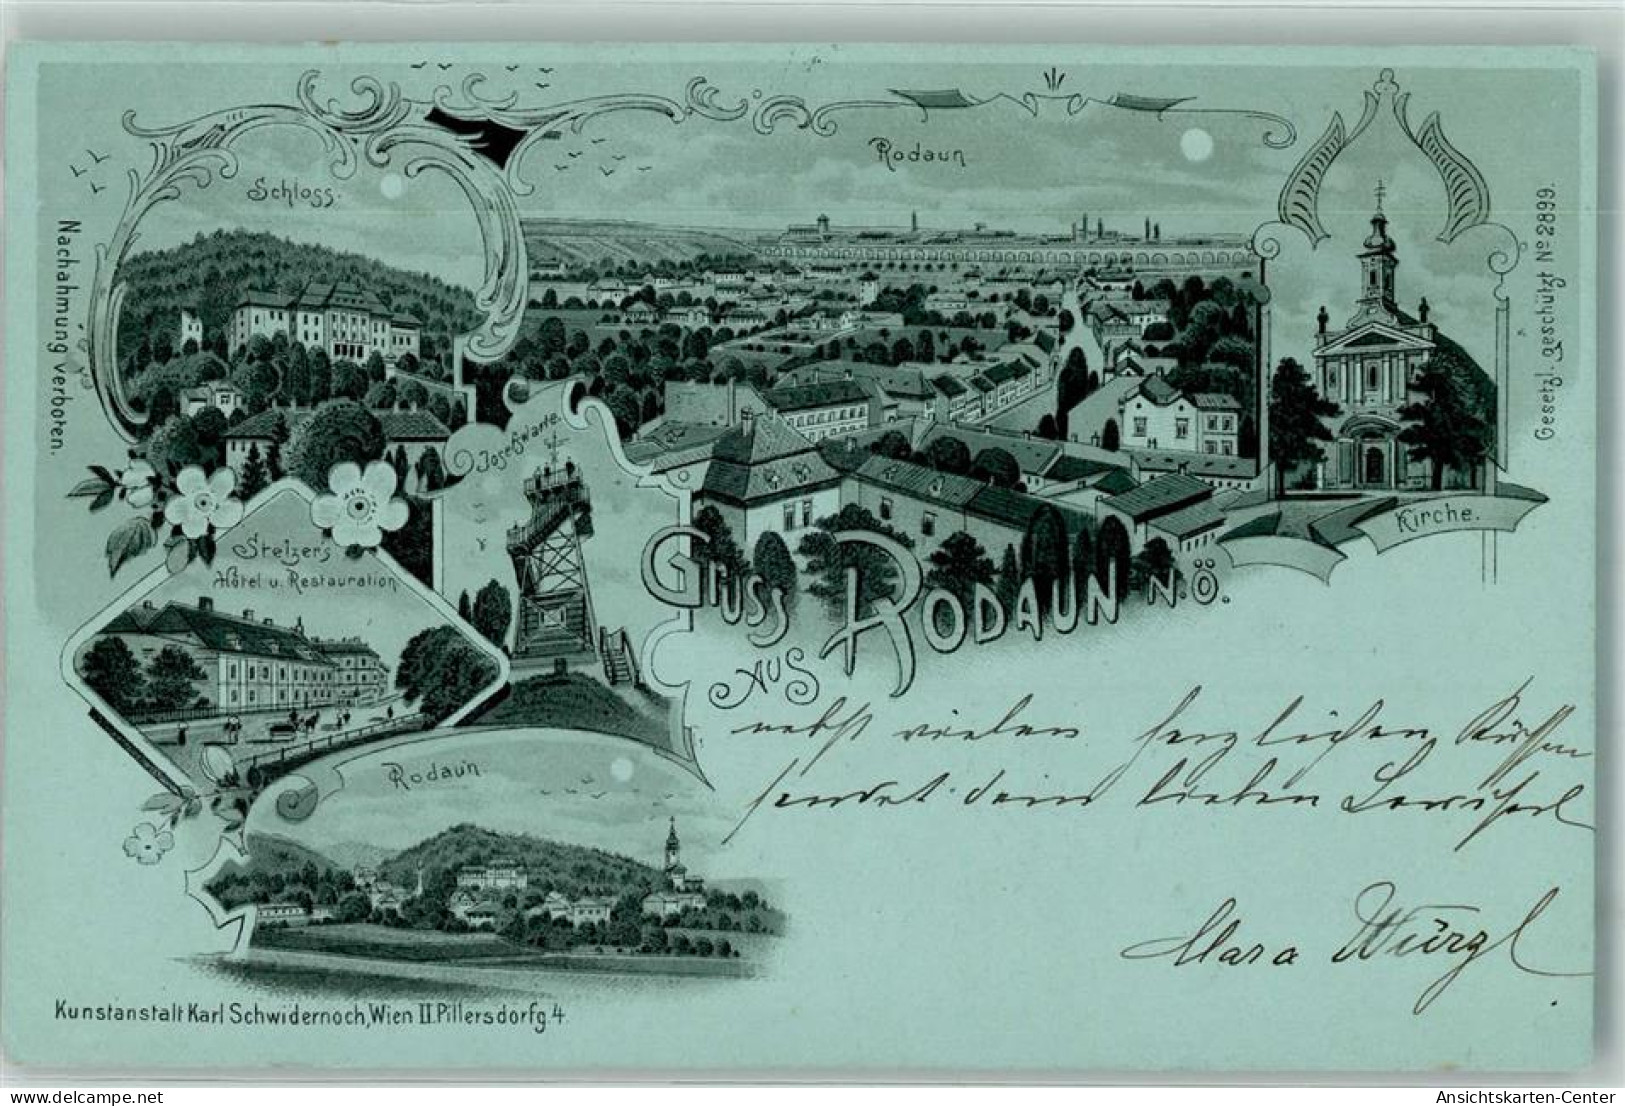 Schloss.
Rodaun
Nachahmung verboten.
Gesetzl. geschützt Nº 2899.
Josefswarte.
Kirche.
Stelzer's
Hôtel u. Restauration
Gruss
aus Rodaun N.Ö.
nebst vielen herzlichen Küssen
sendet dem lieben
Rodaun
Mara Würzl
Kunstanstalt Karl Schwidernoch, Wien II. Pillersdorfg. 4.
www.delcampe.net
Ansichtskarten-Center